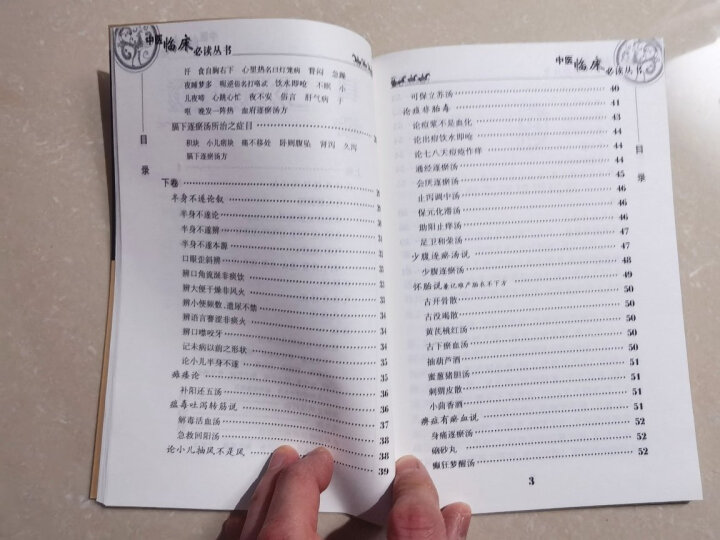 中医临床必读丛书
汗 食自胸右下 心里热名曰灯笼病 瞀闷 急躁
夜睡梦多 呃逆俗名打咯忒 饮水即呛 不眠 小
儿夜啼 心跳心忙 夜不安 俗言 肝气病 干
呕 晚发一阵热 血府逐瘀汤方
膈下逐瘀汤所治之症目
积块 小儿痞块 痛不移处 卧则腹坠 肾泻 久泻
膈下逐瘀汤方
目录
下卷
半身不遂论叙
半身不遂论
半身不遂辨 31
半身不遂本源 31
口眼歪斜辨 31
辨口角流涎非痰饮
辨大便干燥非风火
辨小便频数、遗尿不禁
辨语言蹇涩非痰火
辨口噤咬牙
记未病以前之形状
论小儿半身不遂 35
瘫痿论 35
补阳还五汤 36
瘟毒吐泻转筋说 36
解毒活血汤 37
急救回阳汤 38
论小儿抽风不是风 38
39
中医临床必读丛书
可保立苏汤 40
论痘非胎毒 41
论痘浆不是血化
论出痘饮水即呛 44
论七八天痘疮作痒 44
通经逐瘀汤 44
会厌逐瘀汤 45
止泻调中汤 46
保元化滞汤 46
助阳止痒汤 47
足卫和荣汤 47
少腹逐瘀汤说 47
少腹逐瘀汤 48
怀胎说兼记难产胎衣不下方 49
古开骨散 50
古没竭散 50
黄芪桃红汤 50
古下瘀血汤 50
抽葫芦酒
蜜葱猪胆汤 51
刺猬皮散 51
小茴香酒 51
痹症有瘀血说 52
身痛逐瘀汤 52
硇砂丸 52
癫狂梦醒汤 52
目录
3